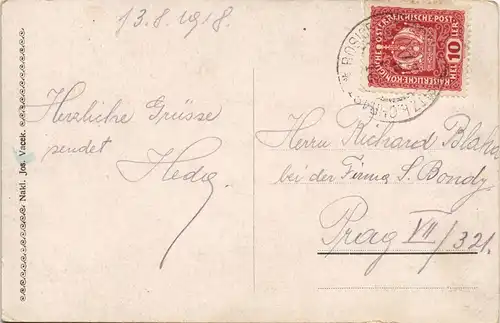 13.8.1918.
KAISERLICHE KÖNIGLICHE ÖSTERREICHISCHE POST
10 HELLER
Herzliche Grüsse
sendet
Hedy
Herrn Richard
bei der Firma S. Bondy
Prag VII/321.
Nakl. Jos. Vacek.